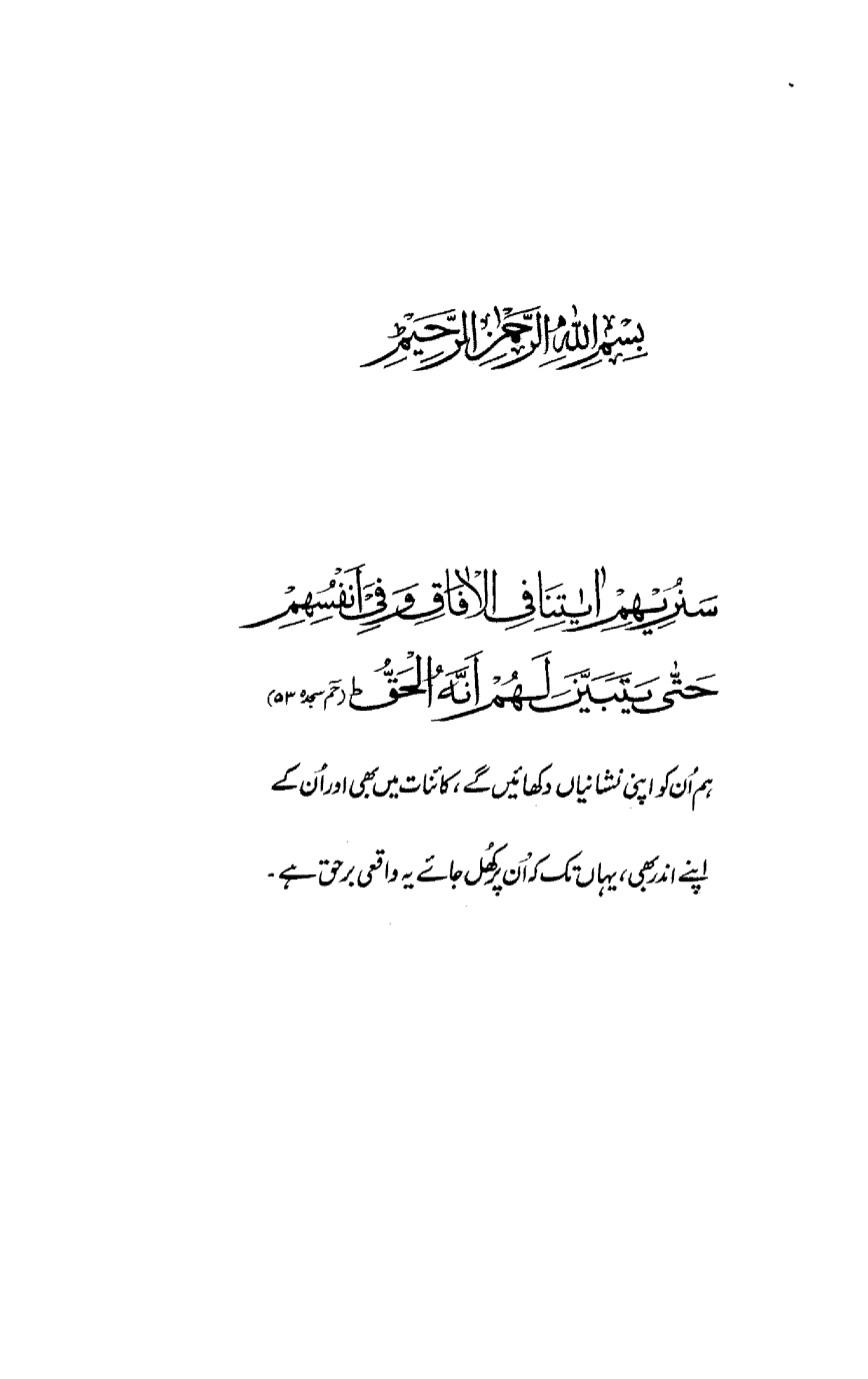 بِسْمِ اللّٰهِ الرَّحْمٰنِ الرَّحِیْمِؕ
سَنُرِیْهِمْ اٰیٰتِنَا فِی الْاٰفَاقِ وَ فِیْۤ اَنْفُسِهِمْ
حَتّٰی یَتَبَیَّنَ لَهُمْ اَنَّهُ الْحَقُّ ؕ (حٰمٓ سجدہ ۵۳)
ہم اُن کو اپنی نشانیاں دکھائیں گے، کائنات میں بھی اور اُن کے
اپنے اندر بھی، یہاں تک کہ اُن پر کُھل جائے یہ واقعی برحق ہے۔